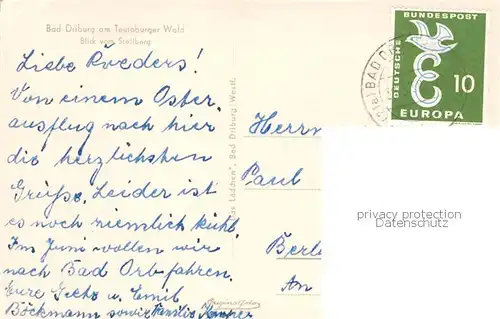 Bad Driburg am Teutoburger Wald
Blick vom Stellberg
Liebe Roeders!
Von einem Oster-
ausflug nach hier
die herzlichsten
Grüße. Leider ist
es noch ziemlich kühl.
Im Juni wollen wir
nach Bad Orb fahren.
Eure u. Emil
Böckmann sowie Familie
Lädchen", Bad Driburg/Westf.
Originalfoto
BAD
DEUTSCHE
BUNDESPOST
10
EUROPA
Herrn
Paul
privacy protection
Datenschutz
Berl
An